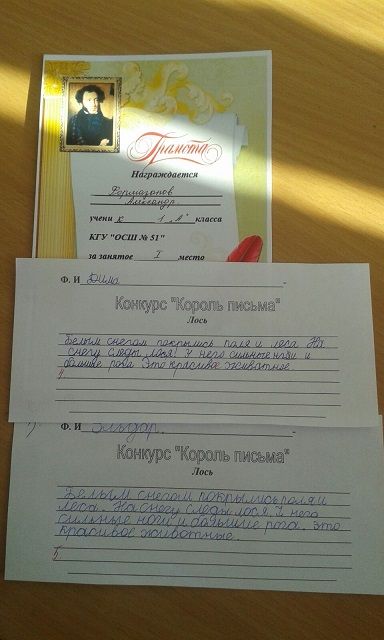 Грамота
Награждается
Фармазонов
Александр
учени к 1 "А" класса
КГУ "ОСШ № 51"
за занятое I место
Ф. И Дима
Конкурс "Король письма"
Лось
Белым снегом покрылись поля и леса. На
снегу следы лося. У него сильные ноги и
большие рога. Это красивое животное.
Ф. И Эльдар.
Конкурс "Король письма"
Лось
Белым снегом покрылись поля и
леса. На снегу следы лося. У него
сильные ноги и большие рога. Это
красивое животные.